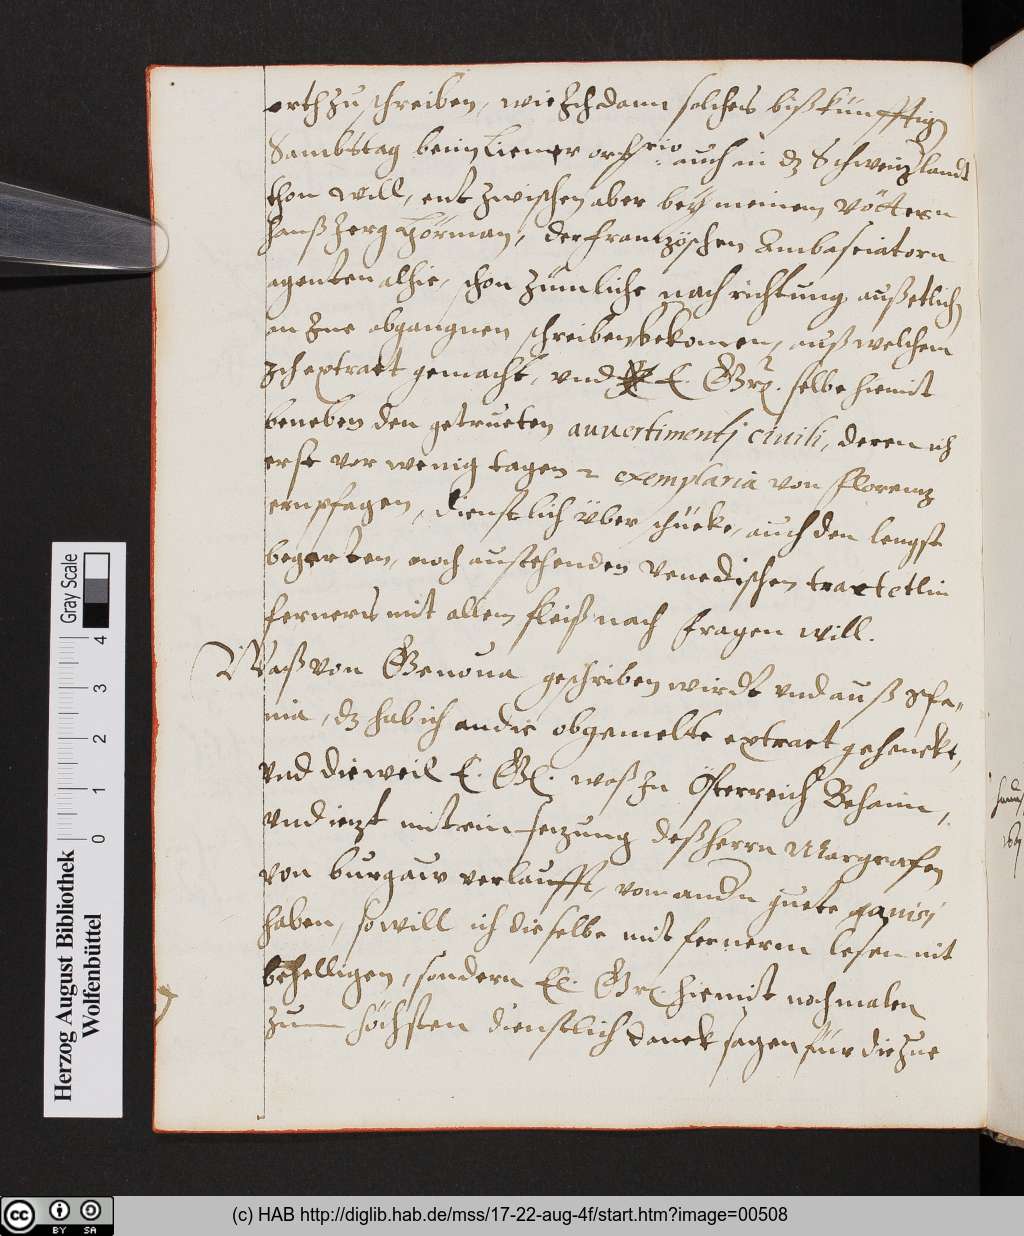 orth zu schreiben, wie Ich dann solches biß künfftig
Sambstag beim Liener ord.rio auch in dz Schweizlandt
thon will, entzwischen aber bey meinem Vöttern
Hanß Jerg Hörman, der französchen Ambasciatorn
agenten alhie, schon zimliche nachrichtung auß etlich
an Jne abgangnen schreiben bekomen, auß welchem
Ich extract gemacht, vnd E. Gn. selbe hiemit
beneben den getrueten auuertimentj ciuili, deren ich
erst vor wenig tagen 2 exemplaria von florenz
empfagen, dienstlich über schücke, auch den lengst
begerten, noch austehenden Venedischen tractetlin
ferners mit allem fleiß nach fragen will.
Waß von Genoua geschriben wirdt vnd auß Spa-
nia, dz hab ich an die obgemelte extract gehenckt,
vnd dieweil E. Gn. waß In Österreich Behaim,
vnd iezt mit einsezung deß herrn Margrafen
von burgaw verlaufft, vom andern guete auisj
haben, so will ich dieselbe mit fernerm lesen nit
behelligen, sondern E. Gn. hiemit nochmalen
zum höchsten dienstlich danck sagen für die Jne
Herzog August Bibliothek
Wolfenbüttel
Gray Scale
0 1 2 3 4
cc BY SA
(c) HAB http://diglib.hab.de/mss/17-22-aug-4f/start.htm?image=00508